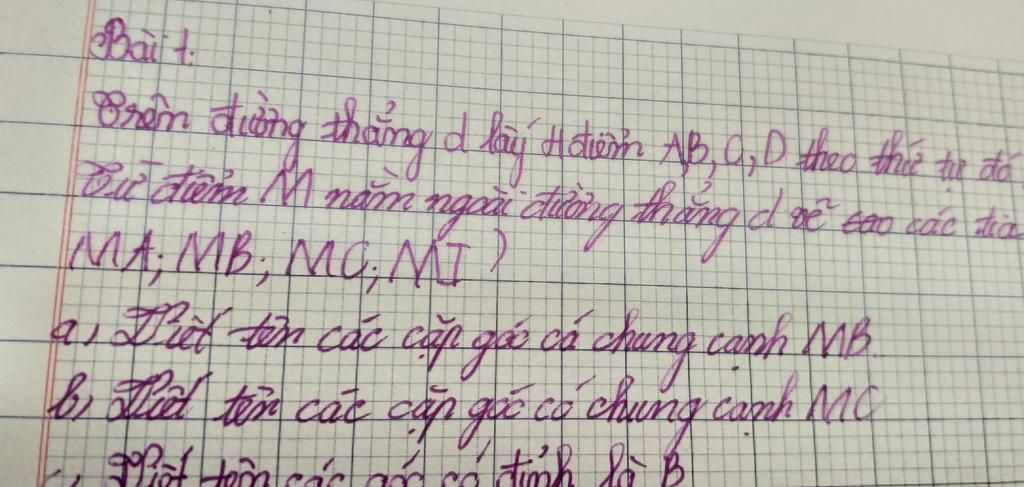 Bài 1:
Trên đường thẳng d lấy 4 điểm A,B,C,D theo thứ tự đó.
Từ điểm M nằm ngoài đường thẳng d vẽ sao các tia
MA; MB; MC; MD
a) Viết tên các cặp góc có chung cạnh MB.
b) Viết tên các cặp góc có chung cạnh MC
c) Viết tên các góc có đỉnh là B